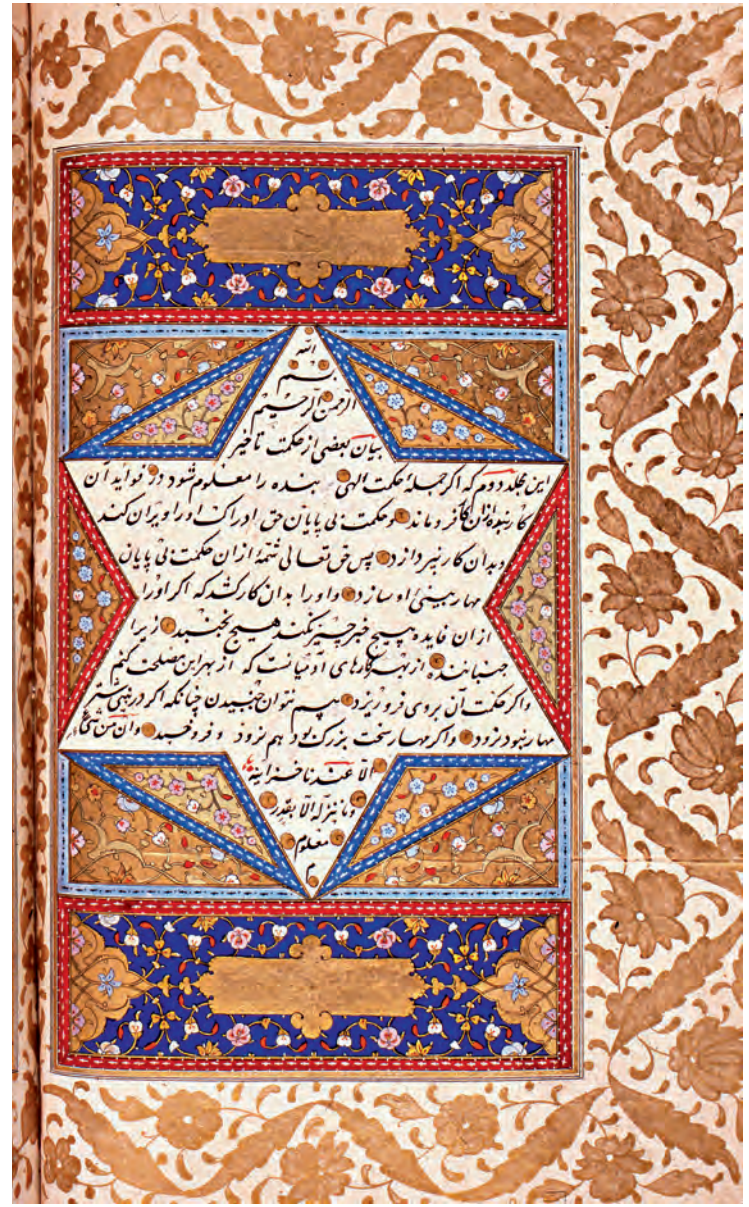 بسم الله
الرحمن الرحیم
بیان بعضی از حکمت تاخیر
این مجلد دوم که اگر جملهٔ حکمت الهی بنده را معلوم شود در فواید آن
کار بنده از آن کار فرو ماند و حکمت بی پایان حق ادراک او را ویران کند
و بدان کار نپردازد پس حق تعالی شمهٔ از آن حکمت بی پایان
مهار بینی او سازد و او را بدان کار کشد که اگر او را
از آن فایده هیچ خبر نکند هیچ نجنبد زیرا
جنباننده از بهرهای آدمیانست که از بهر این مصلحت کنیم
و اگر حکمت آن بروی فرو ریزد هم نتوان جنبیدن چنانکه اگر در بینی شتر
مهار نبود نرود و اگر مهار سخت بزرگ بود هم نرود و فرو خسبد وان من شیء
الا عندنا خزاینه
وما ننزله الا بقدر
معلوم
م